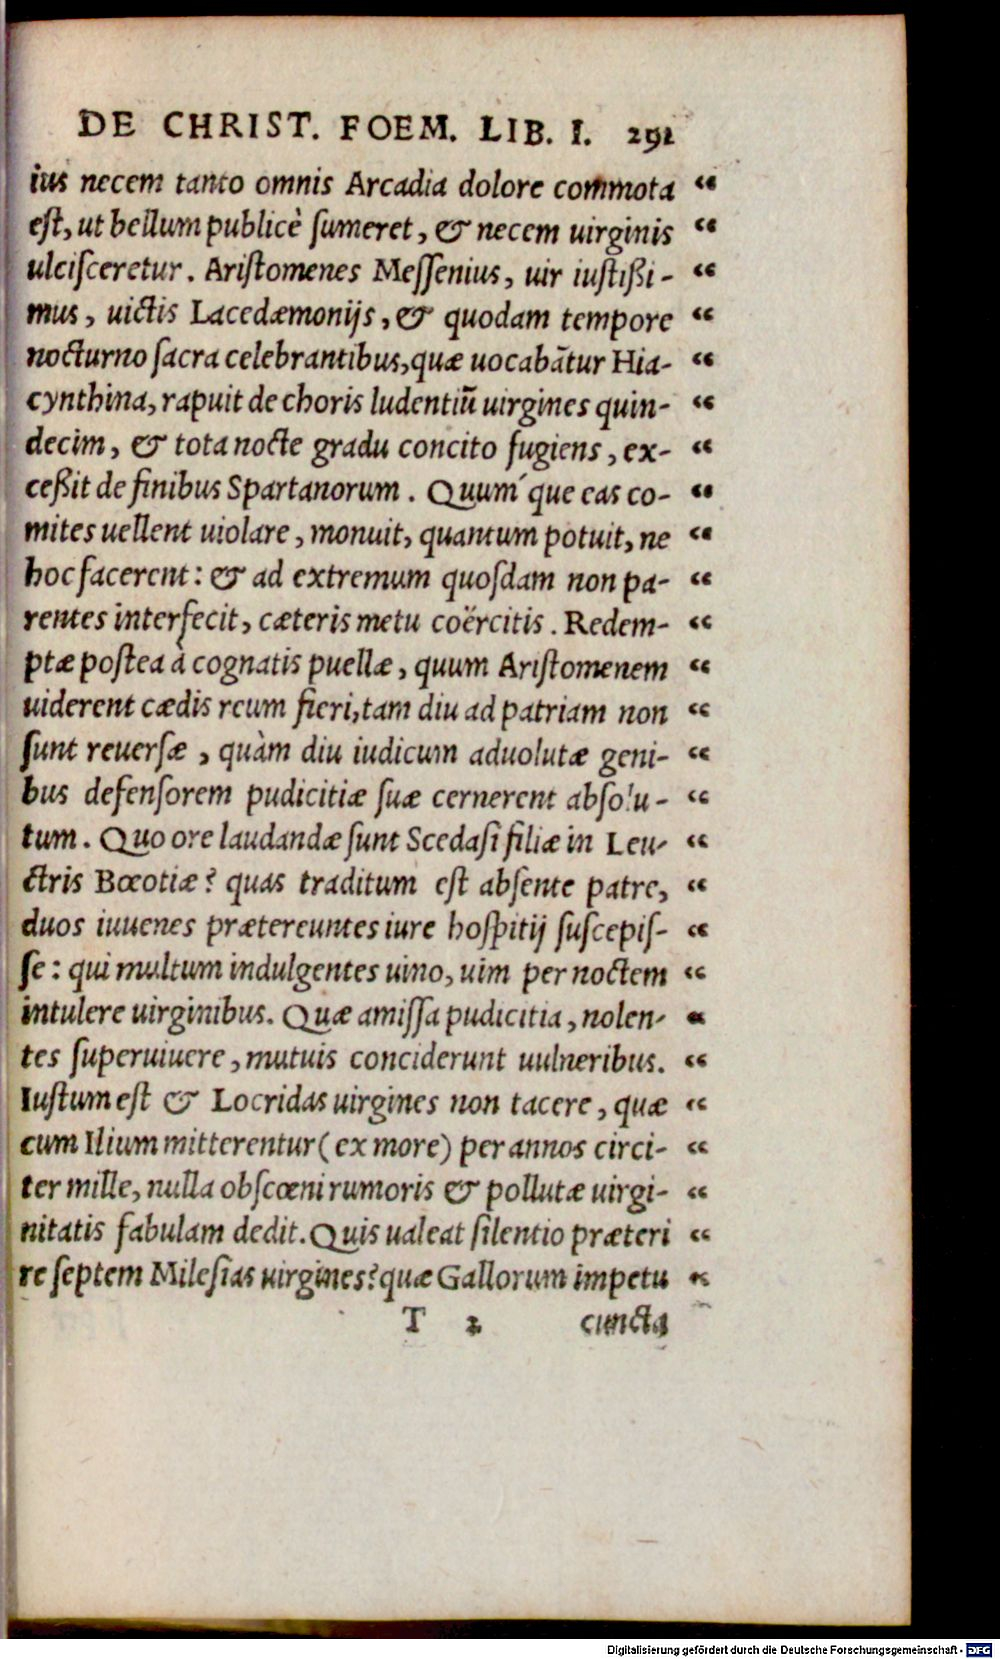 DE CHRIST. FOEM. LIB. I. 291
ius necem tanto omnis Arcadia dolore commota “
est, ut bellum publicè sumeret, & necem uirginis “
ulcisceretur. Aristomenes Messenius, uir iustißi- “
mus, uictis Lacedæmonijs, & quodam tempore “
nocturno sacra celebrantibus, quæ uocabãtur Hia- “
cynthina, rapuit de choris ludentiũ uirgines quin- “
decim, & tota nocte gradu concito fugiens, ex- “
ceßit de finibus Spartanorum. Quum´que eas co- “
mites uellent uiolare, monuit, quantum potuit, ne “
hoc facerent: & ad extremum quosdam non pa- “
rentes interfecit, cæteris metu coërcitis. Redem- “
ptæ postea à cognatis puellæ, quum Aristomenem “
uiderent cædis reum fieri, tam diu ad patriam non “
sunt reuersæ, quàm diu iudicum aduolutæ geni- “
bus defensorem pudicitiæ suæ cernerent absolu- “
tum. Quo ore laudandæ sunt Scedasi filiæ in Leu- “
ctris Bœotiæ? quas traditum est absente patre, “
duos iuuenes prætereuntes iure hospitij suscepis- “
se: qui multum indulgentes uino, uim per noctem “
intulere uirginibus. Quæ amissa pudicitia, nolen- “
tes superuiuere, mutuis conciderunt uulneribus. “
Iustum est & Locridas uirgines non tacere, quæ “
cum Ilium mitterentur (ex more) per annos circi- “
ter mille, nulla obscœni rumoris & pollutæ uirgi- “
nitatis fabulam dedit. Quis ualeat silentio præteri “
re septem Milesias uirgines? quæ Gallorum impetu “
T 2 cuncta
Digitalisierung gefördert durch die Deutsche Forschungsgemeinschaft - DFG